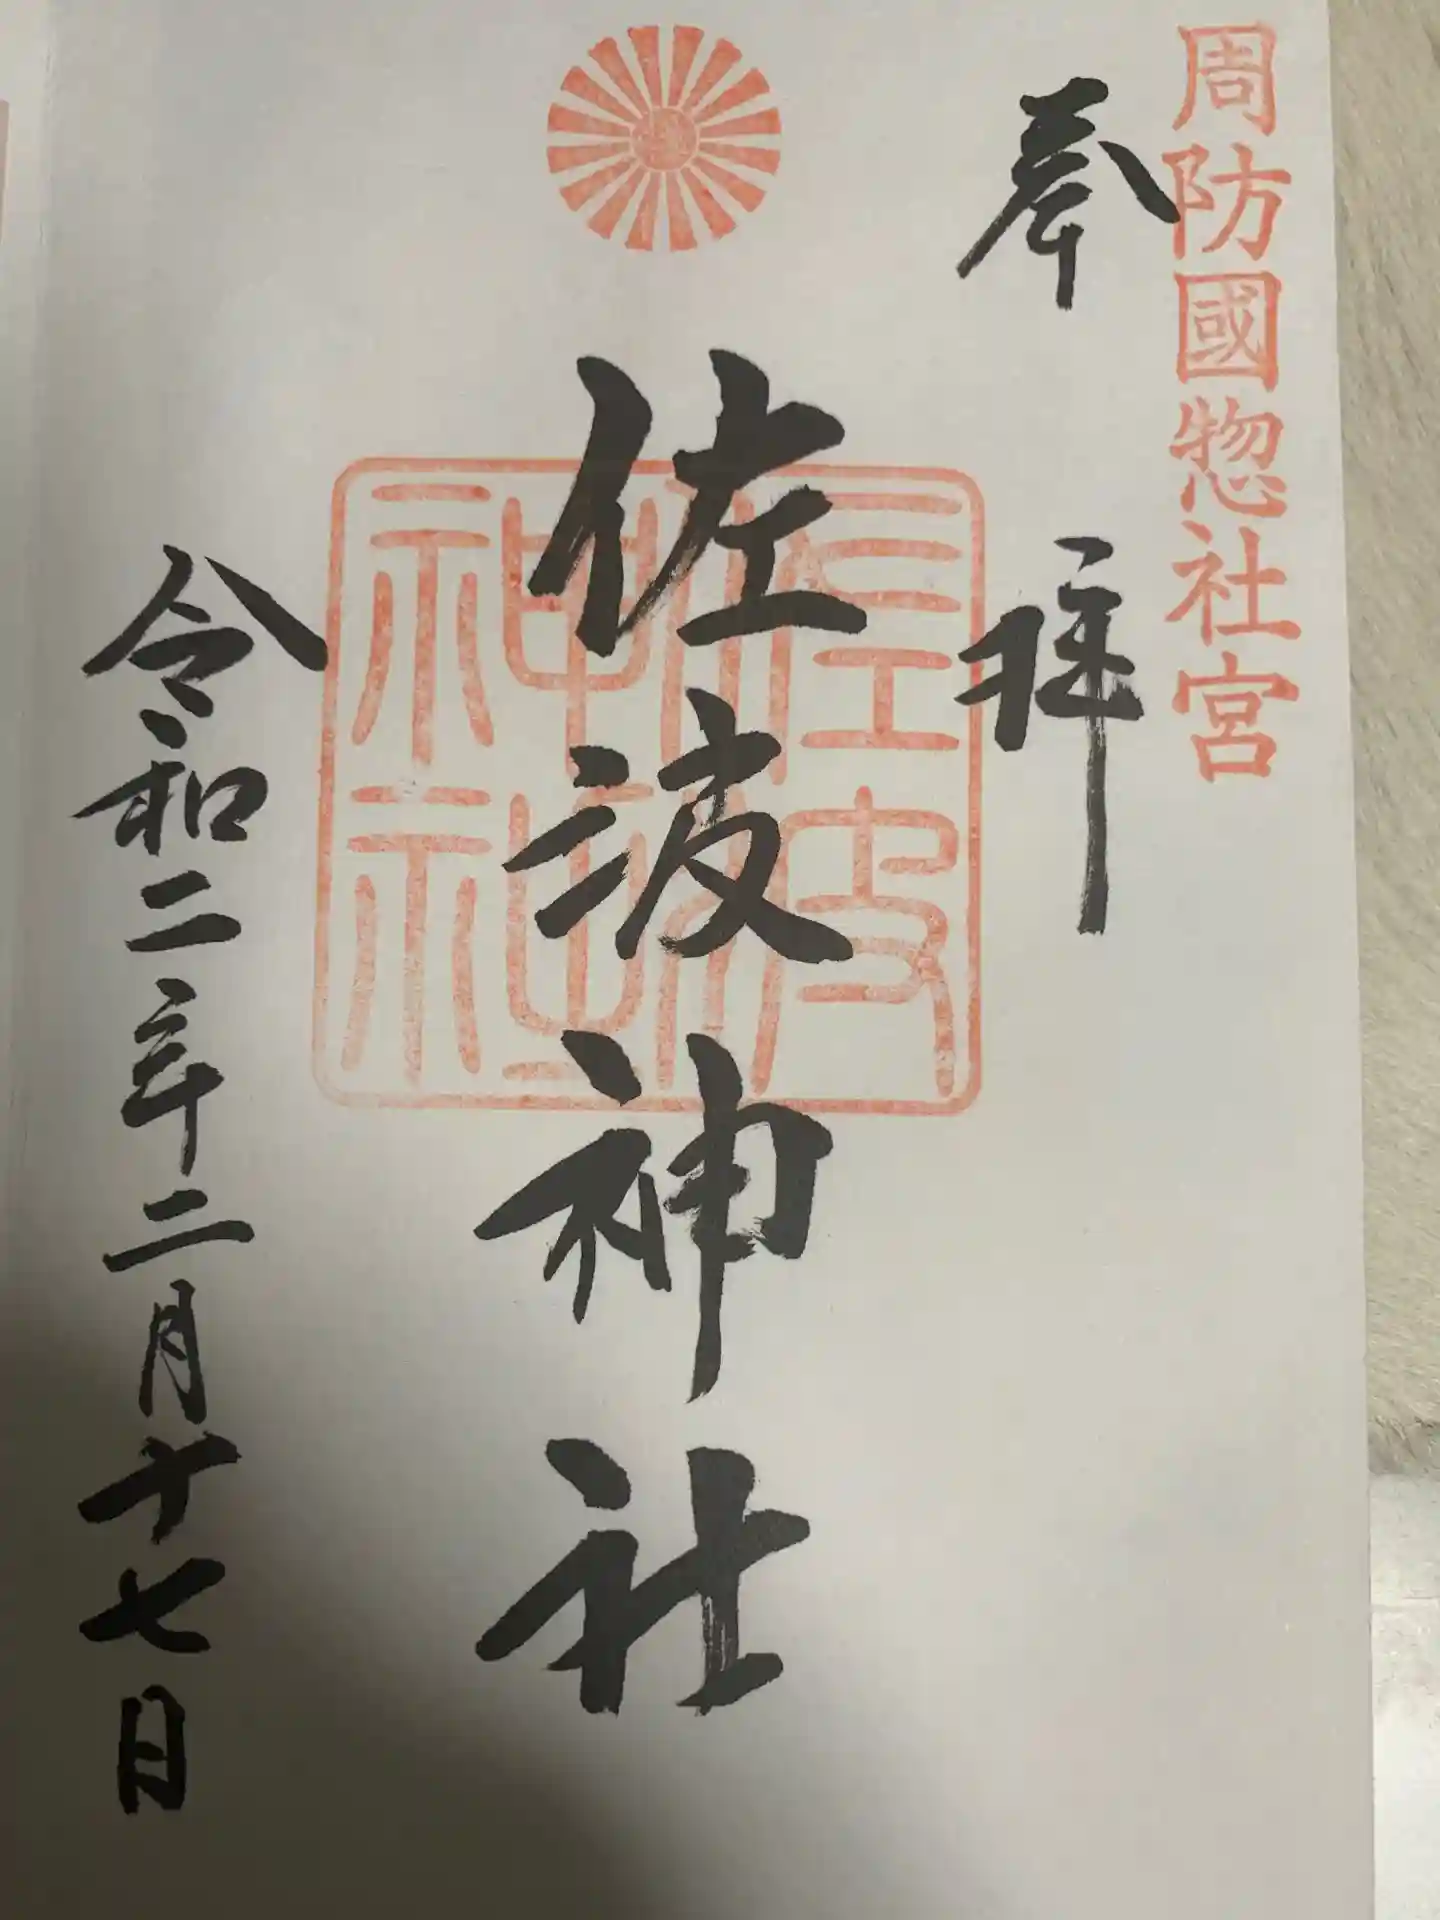 周防國惣社宮
奉拝
佐波神社
佐波神社
令和二年二月十七日